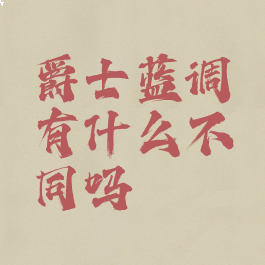 爵士蓝调
有什么不
同吗